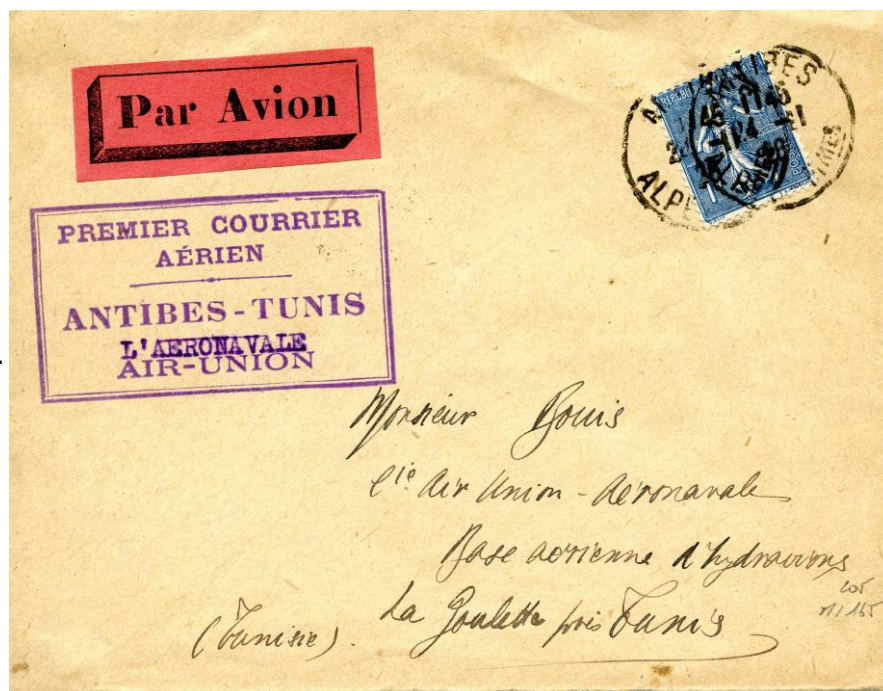 Par Avion
PREMIER COURRIER
AÉRIEN
ANTIBES-TUNIS
L'AERONAVALE
AIR-UNION
ANTIBES
ALPES MMES
Monsieur Bouis
Cie Air Union - Aéronavale
Base aérienne d'hydravions
La Goulette près Tunis
(Tunisie).